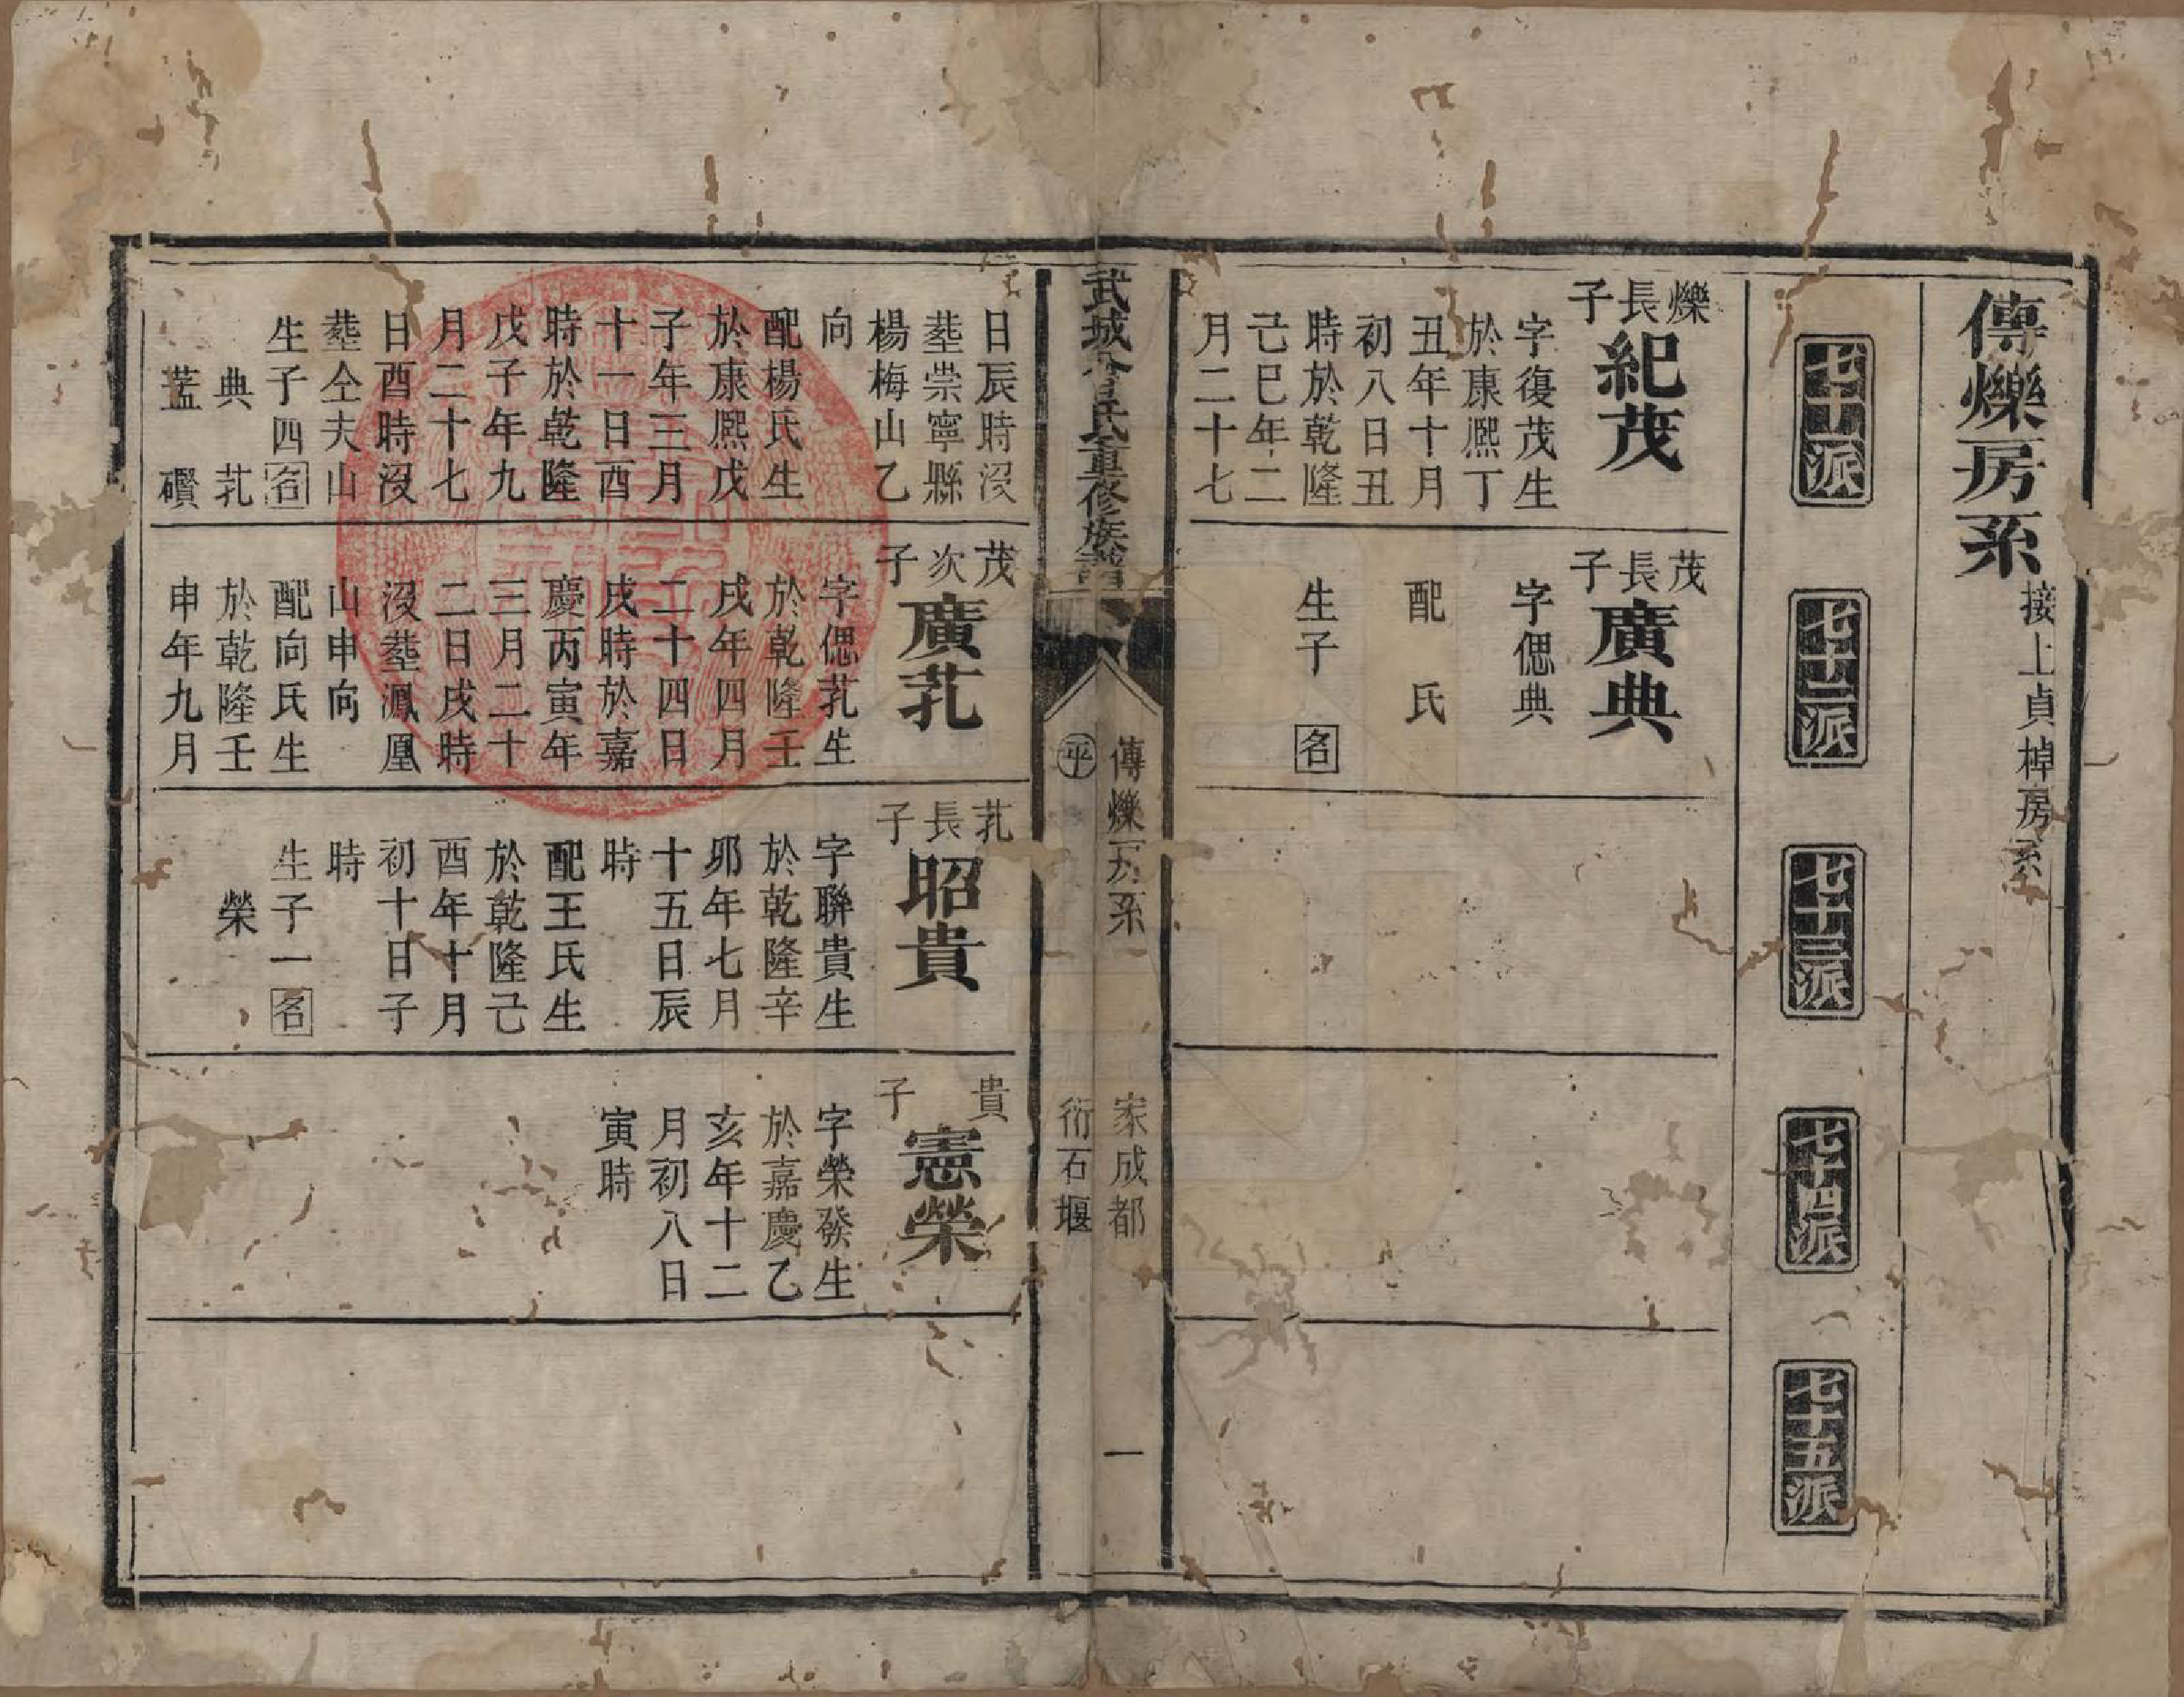 傳爍房系
接上貞樟房系
七十一派
七十二派
七十三派
七十四派
七十五派
爍長子
紀茂
字復茂生
於康熈丁
丑年十月
初八日丑
時於乾隆
己巳年二
月二十七
茂長子
廣典
字偲典
配　氏
生子　名
武城曾氏重修族譜
傳爍房系
㊉平
家成都
衍石堰
一
日辰時沒
塟崇寧縣
楊梅山乙
向
配楊氏生
於康熈戊
子年三月
十一日酉
時於乾隆
戊子年九
月二十七
日酉時沒
塟仝夫山
生子四名
典　芤
藍　礸
茂次子
廣芤
字偲芤生
於乾隆壬
戌年四月
二十四日
戌時於嘉
慶丙寅年
三月二十
二日戌時
沒塟鳳凰
山申向
配向氏生
於乾隆壬
申年九月
芤長子
昭貴
字聯貴生
於乾隆辛
卯年七月
十五日辰
時
配王氏生
於乾隆己
酉年十月
初十日子
時
生子一名
榮
貴子
憲榮
字榮發生
於嘉慶乙
亥年十二
月初八日
寅時